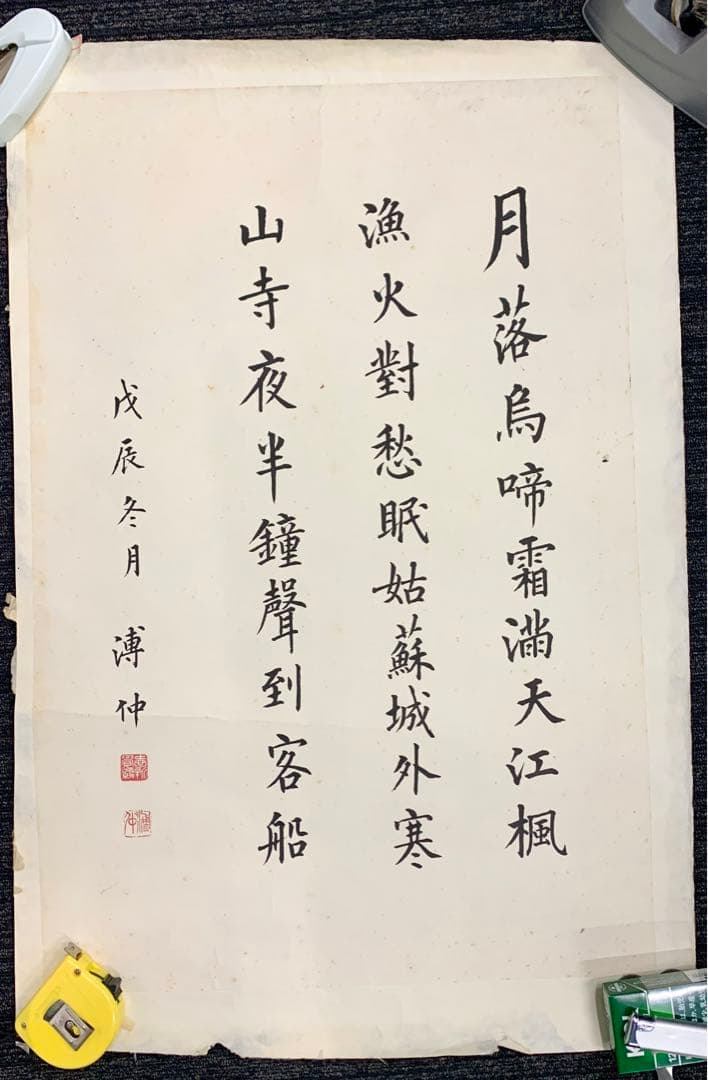 月落烏啼霜滿天江楓
漁火對愁眠姑蘇城外寒
山寺夜半鐘聲到客船
戊辰冬月 溥仲